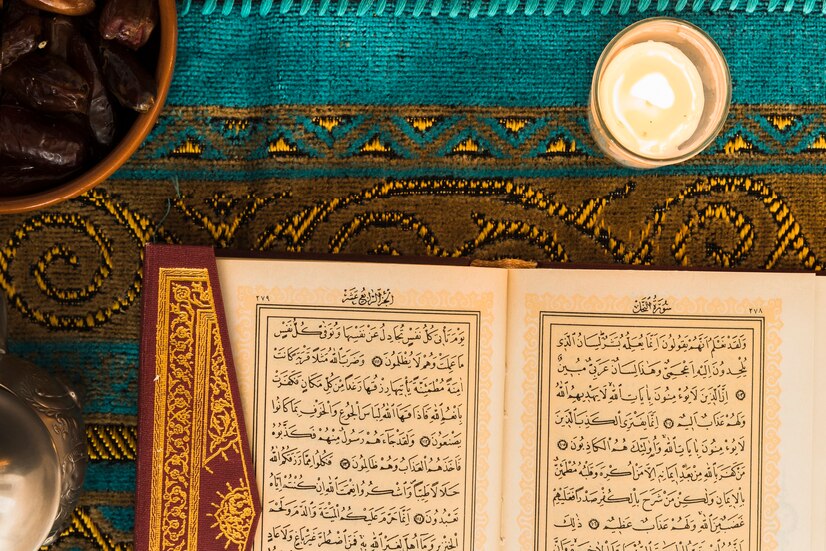 سُورَةُ النَّحْل
٢٧٨
وَلَقَدْ نَعْلَمُ أَنَّهُمْ يَقُولُونَ إِنَّمَا يُعَلِّمُهُ بَشَرٌ لِسَانُ الَّذِي
يُلْحِدُونَ إِلَيْهِ أَعْجَمِيٌّ وَهٰذَا لِسَانٌ عَرَبِيٌّ مُبِينٌ
﴿١٠٣﴾ إِنَّ الَّذِينَ لَا يُؤْمِنُونَ بِآيَاتِ اللّٰهِ لَا يَهْدِيهِمُ اللّٰهُ
وَلَهُمْ عَذَابٌ أَلِيمٌ ﴿١٠٤﴾ إِنَّمَا يَفْتَرِي الْكَذِبَ الَّذِينَ
لَا يُؤْمِنُونَ بِآيَاتِ اللّٰهِ وَأُولٰئِكَ هُمُ الْكَاذِبُونَ ﴿١٠٥﴾
مَنْ كَفَرَ بِاللّٰهِ مِنْ بَعْدِ إِيمَانِهِ إِلَّا مَنْ أُكْرِهَ وَقَلْبُهُ مُطْمَئِنٌّ
بِالْإِيمَانِ وَلٰكِنْ مَنْ شَرَحَ بِالْكُفْرِ صَدْرًا فَعَلَيْهِمْ
غَضَبٌ مِنَ اللّٰهِ وَلَهُمْ عَذَابٌ عَظِيمٌ ﴿١٠٦﴾ ذٰلِكَ
الْجُزْءُ الرَّابِعُ عَشَرَ
٢٧٩
يَوْمَ تَأْتِي كُلُّ نَفْسٍ تُجَادِلُ عَنْ نَفْسِهَا وَتُوَفَّى كُلُّ نَفْسٍ
مَا عَمِلَتْ وَهُمْ لَا يُظْلَمُونَ ﴿١١١﴾ وَضَرَبَ اللّٰهُ مَثَلًا قَرْيَةً كَانَتْ
آمِنَةً مُطْمَئِنَّةً يَأْتِيهَا رِزْقُهَا رَغَدًا مِنْ كُلِّ مَكَانٍ فَكَفَرَتْ
بِأَنْعُمِ اللّٰهِ فَأَذَاقَهَا اللّٰهُ لِبَاسَ الْجُوعِ وَالْخَوْفِ بِمَا كَانُوا
يَصْنَعُونَ ﴿١١٢﴾ وَلَقَدْ جَاءَهُمْ رَسُولٌ مِنْهُمْ فَكَذَّبُوهُ
فَأَخَذَهُمُ الْعَذَابُ وَهُمْ ظَالِمُونَ ﴿١١٣﴾ فَكُلُوا مِمَّا رَزَقَكُمُ اللّٰهُ
حَلَالًا طَيِّبًا وَاشْكُرُوا نِعْمَتَ اللّٰهِ إِنْ كُنْتُمْ إِيَّاهُ
تَعْبُدُونَ ﴿١١٤﴾ إِنَّمَا حَرَّمَ عَلَيْكُمُ الْمَيْتَةَ وَالدَّمَ وَلَحْمَ
الْخِنْزِيرِ وَمَا أُهِلَّ لِغَيْرِ اللّٰهِ بِهِ فَمَنِ اضْطُرَّ غَيْرَ بَاغٍ وَلَا عَادٍ